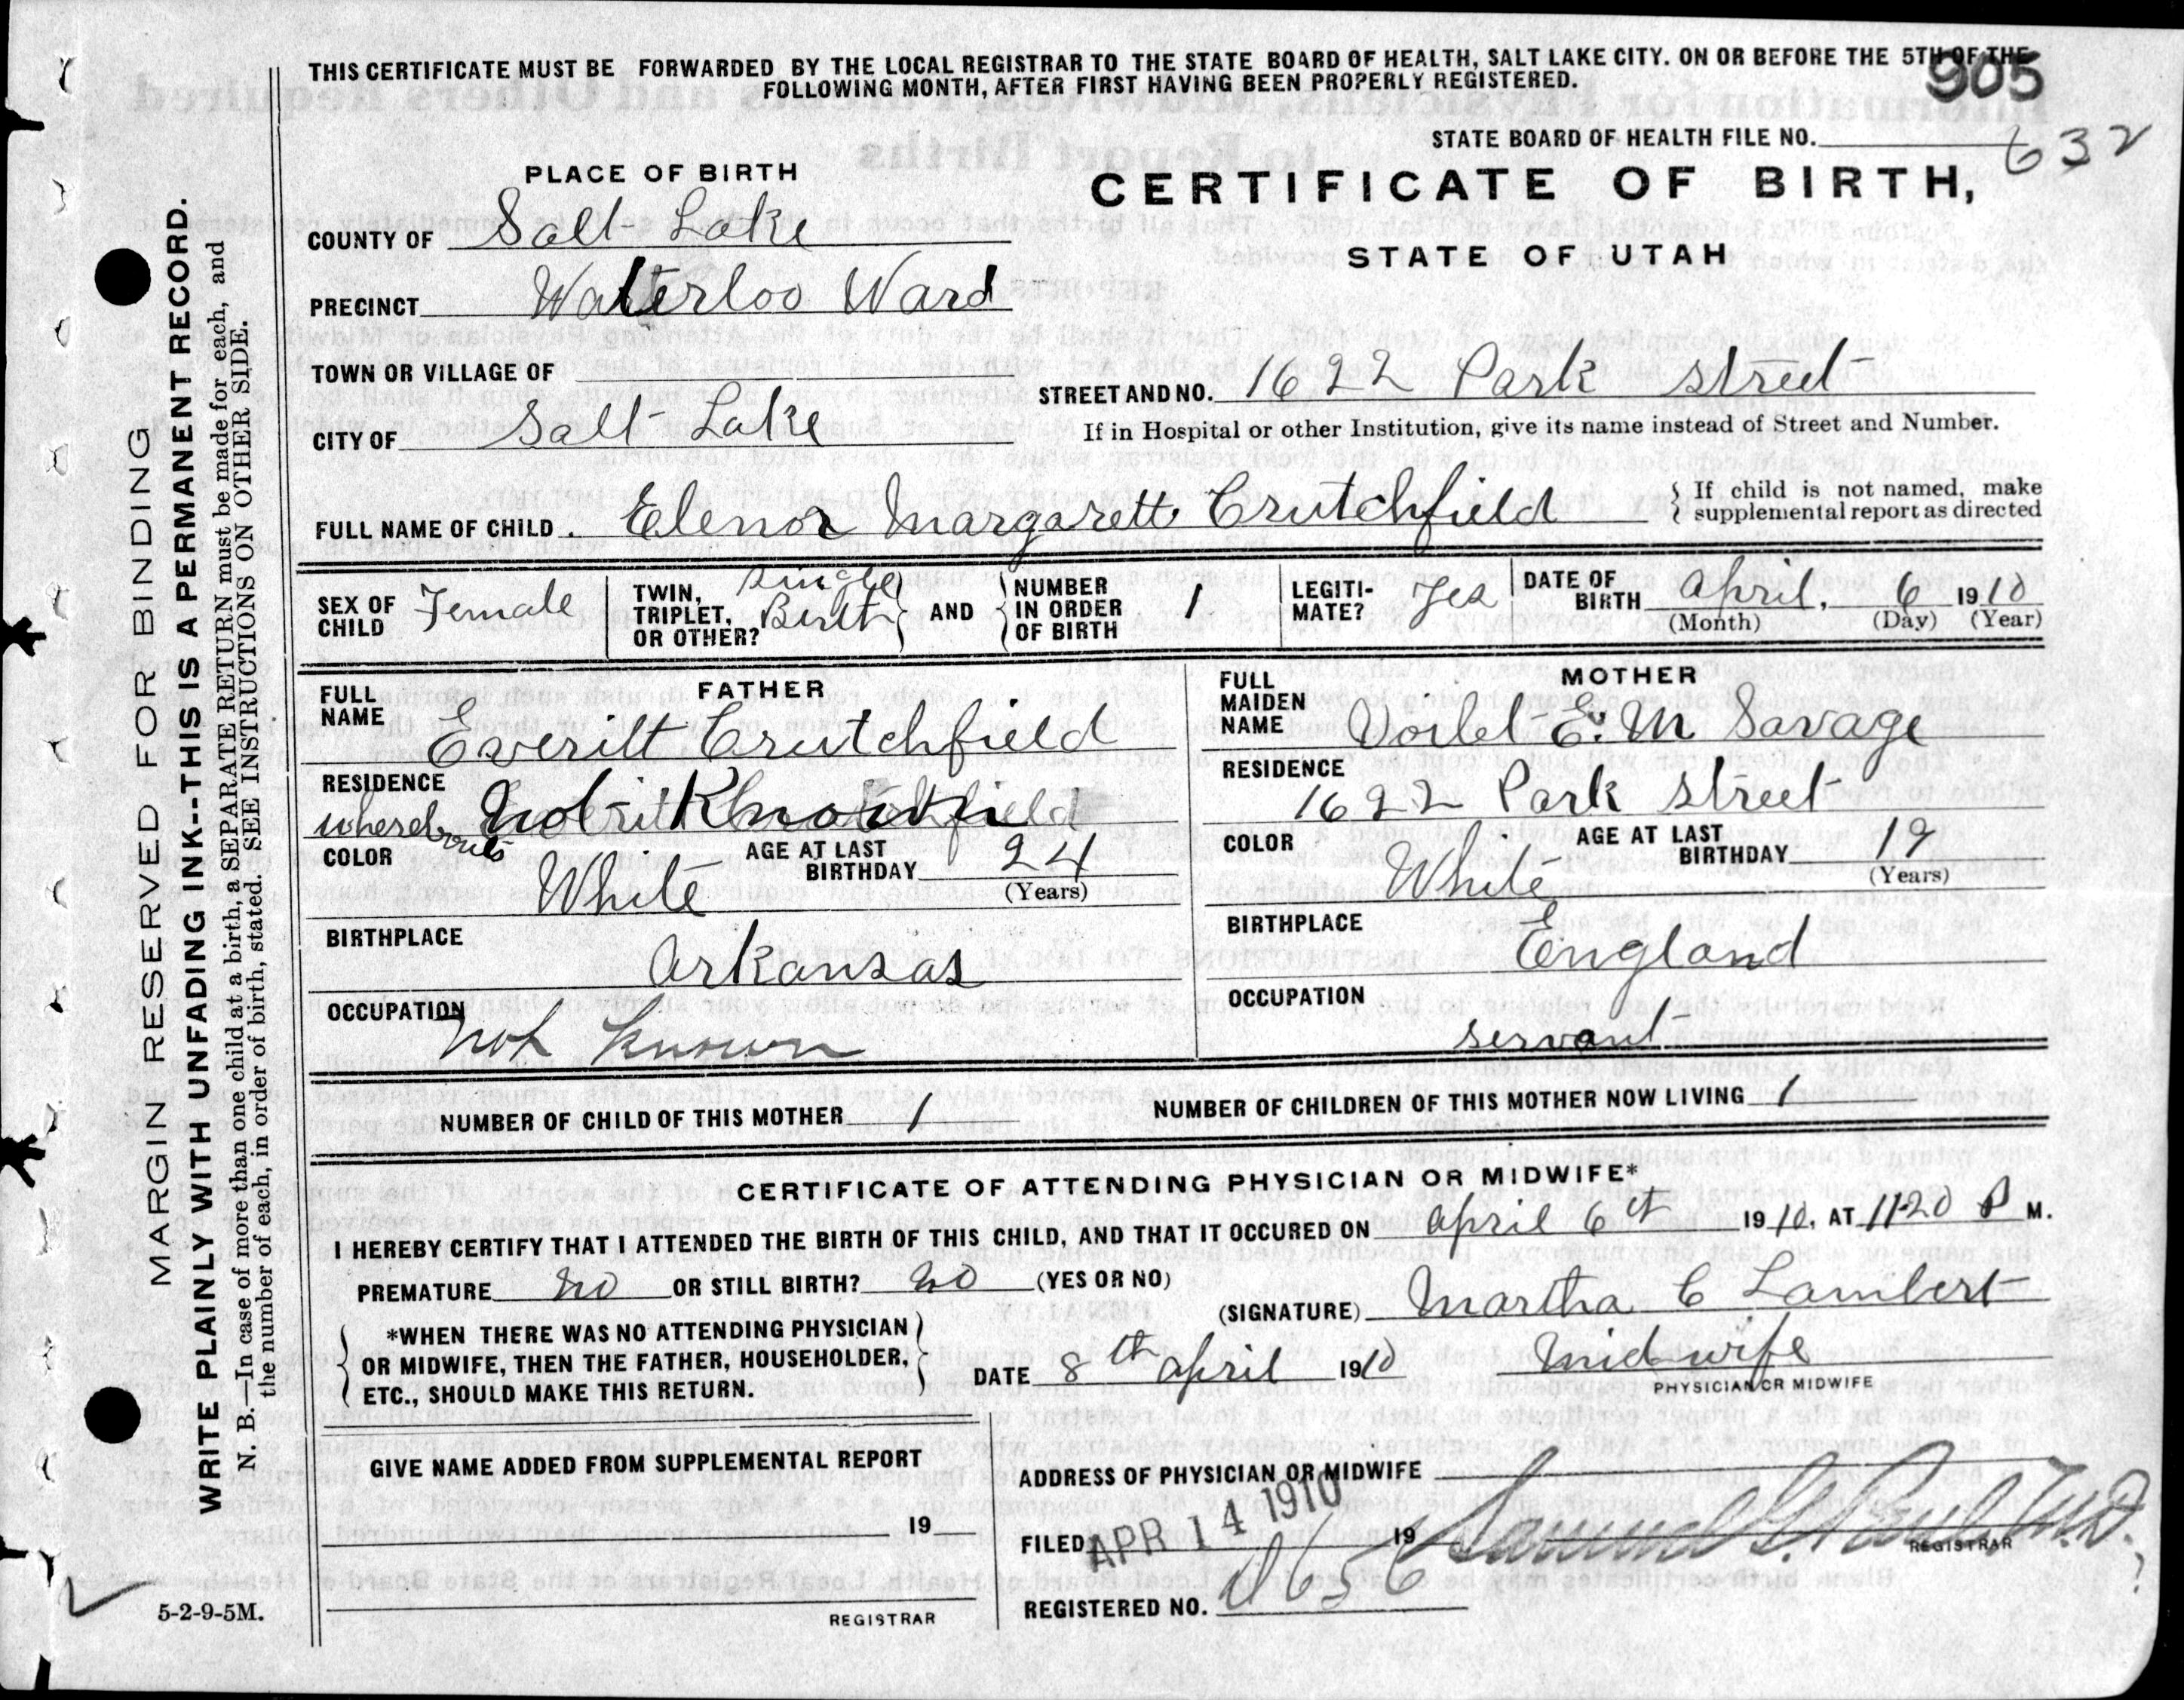 THIS CERTIFICATE MUST BE FORWARDED BY THE LOCAL REGISTRAR TO THE STATE BOARD OF HEALTH, SALT LAKE CITY. ON OR BEFORE THE 5TH OF THE
FOLLOWING MONTH, AFTER FIRST HAVING BEEN PROPERLY REGISTERED.
905
STATE BOARD OF HEALTH FILE NO. 632
CERTIFICATE OF BIRTH,
STATE OF UTAH
PLACE OF BIRTH
COUNTY OF Salt Lake
PRECINCT Waterloo Ward
TOWN OR VILLAGE OF
STREET AND NO. 1622 Park street
CITY OF Salt Lake
If in Hospital or other Institution, give its name instead of Street and Number.
FULL NAME OF CHILD. Elenor Margarett Crutchfield
If child is not named, make
supplemental report as directed
SEX OF CHILD Female
TWIN, TRIPLET, OR OTHER? single Birth
AND
NUMBER IN ORDER OF BIRTH 1
LEGITI-MATE? Yes
DATE OF BIRTH April, 6 1910
(Month) (Day) (Year)
FATHER
FULL NAME Everitt Crutchfield
RESIDENCE
whereabouts not Known
COLOR White
AGE AT LAST BIRTHDAY 24
(Years)
BIRTHPLACE
Arkansas
OCCUPATION
not Known
MOTHER
FULL MAIDEN NAME Voilet E. M Savage
RESIDENCE
1622 Park street
COLOR White
AGE AT LAST BIRTHDAY 19
(Years)
BIRTHPLACE
England
OCCUPATION
servant
NUMBER OF CHILD OF THIS MOTHER 1
NUMBER OF CHILDREN OF THIS MOTHER NOW LIVING 1
CERTIFICATE OF ATTENDING PHYSICIAN OR MIDWIFE*
I HEREBY CERTIFY THAT I ATTENDED THE BIRTH OF THIS CHILD, AND THAT IT OCCURED ON April 6th 1910, AT 11-20 P M.
PREMATURE no OR STILL BIRTH? no (YES OR NO)
(SIGNATURE) Martha C Lambert
*WHEN THERE WAS NO ATTENDING PHYSICIAN
OR MIDWIFE, THEN THE FATHER, HOUSEHOLDER,
ETC., SHOULD MAKE THIS RETURN.
DATE 8th April 1910
Midwife
PHYSICIAN OR MIDWIFE
GIVE NAME ADDED FROM SUPPLEMENTAL REPORT
19
REGISTRAR
ADDRESS OF PHYSICIAN OR MIDWIFE
FILED APR 14 1910 19
Samuel G. Paul, M.D.
REGISTRAR
REGISTERED NO. D656
5-2-9-5M.
MARGIN RESERVED FOR BINDING
WRITE PLAINLY WITH UNFADING INK--THIS IS A PERMANENT RECORD.
N. B.—In case of more than one child at a birth, a SEPARATE RETURN must be made for each, and
the number of each, in order of birth, stated. SEE INSTRUCTIONS ON OTHER SIDE.